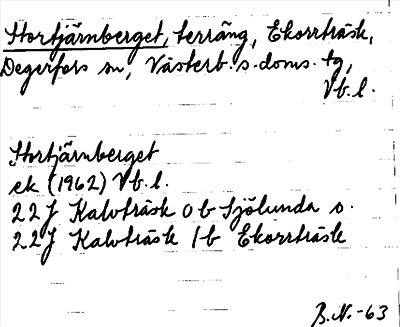 Stortjärnberget, terräng, Ekorrträsk,
Degerfors sn, Västerb. s. doms. tg,
Vb. l.
Stortjärnberget
ek (1962) Vb. l.
22J Kalvträsk 0b Sjölunda o.
22J Kalvträsk 1b Ekorrträsk
B.N.-63